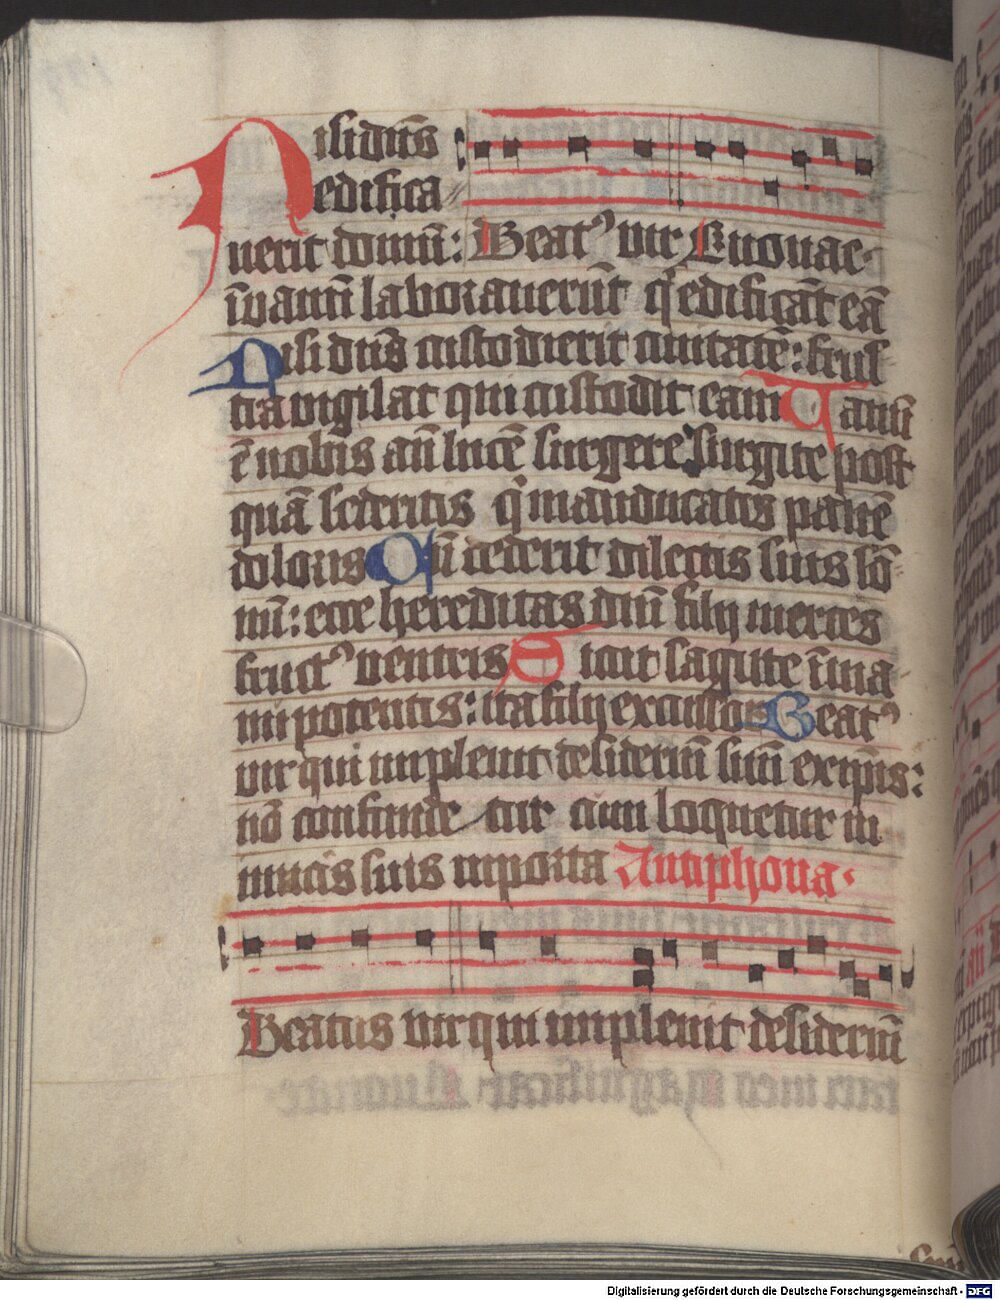 Nisi dn̄s
edifica
uerit domū: Beatꝰ vir Euouae·
ī vanū laborauerūt q̄ edificāt eā
Nisi dn̄s custodierit ciuitatē: frus
tra vigilat qui custodit eam Vanū
ē nobis an̄ lucē surgere surgite post
quā sederitis q̄ manducatis panē
doloris Cū dederit dilectis suis sō-
nū: ecce hereditas dn̄i filij merces
fructꝰ ventris Sicut sagitte ī ma
nu potentis: ita filij excussorum Beatꝰ
vir qui impleuit desideriū suū ex ip̄is:
nō confundetur cum loquetur in
imicis suis in porta Antiphona·
Beatus vir qui impleuit desideriū
Digitalisierung gefördert durch die Deutsche Forschungsgemeinschaft - DFG